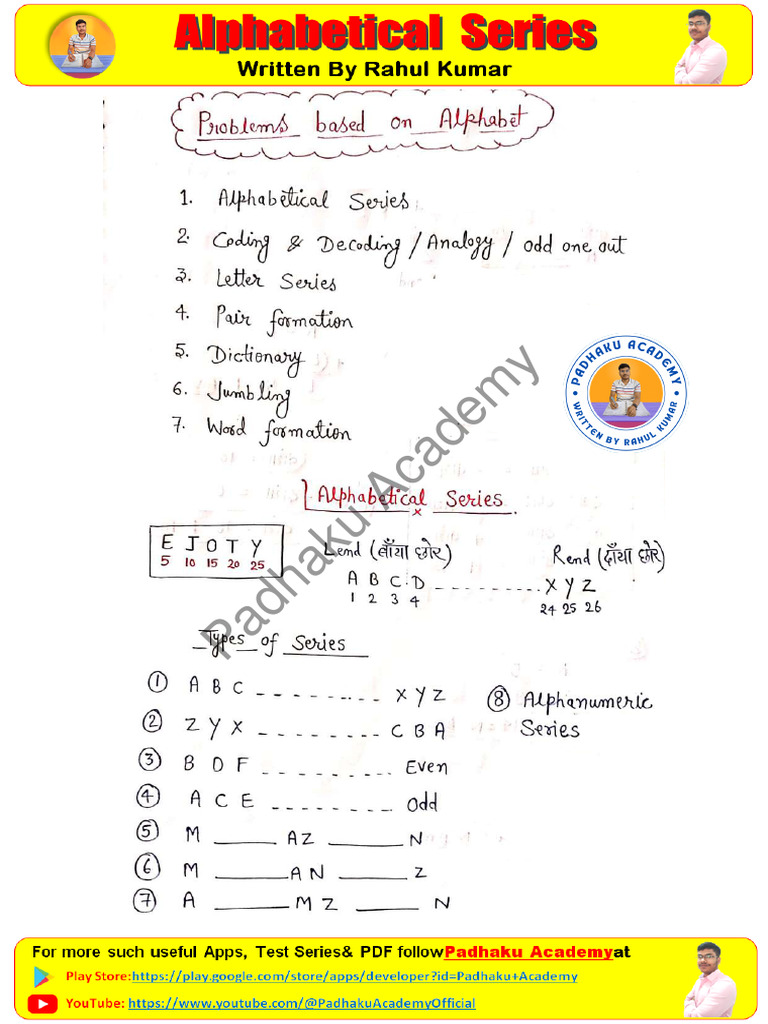 Alphabetical Series
Written By Rahul Kumar
Problems based on Alphabet
1. Alphabetical Series
2. Coding & Decoding / Analogy / odd one out
3. Letter Series
4. Pair formation
5. Dictionary
6. Jumbling
7. Word formation
PADHAKU ACADEMY
WRITTEN BY RAHUL KUMAR
Padhaku Academy
Alphabetical Series
E J O T Y
5 10 15 20 25
Lend (बाँया छोर)
Rend (दाँया छोर)
A B C D - - - - - - - - - X Y Z
1 2 3 4 24 25 26
Types of Series
① A B C - - - - - - - - X Y Z
② Z Y X - - - - - - - - C B A
③ B D F - - - - - - - - Even
④ A C E - - - - - - - - Odd
⑤ M ____ AZ ____ N
⑥ M ____ AN ____ Z
⑦ A ____ MZ ____ N
⑧ Alphanumeric
Series
For more such useful Apps, Test Series& PDF followPadhaku Academyat
Play Store:https://play.google.com/store/apps/developer?id=Padhaku+Academy
YouTube: https://www.youtube.com/@PadhakuAcademyOfficial